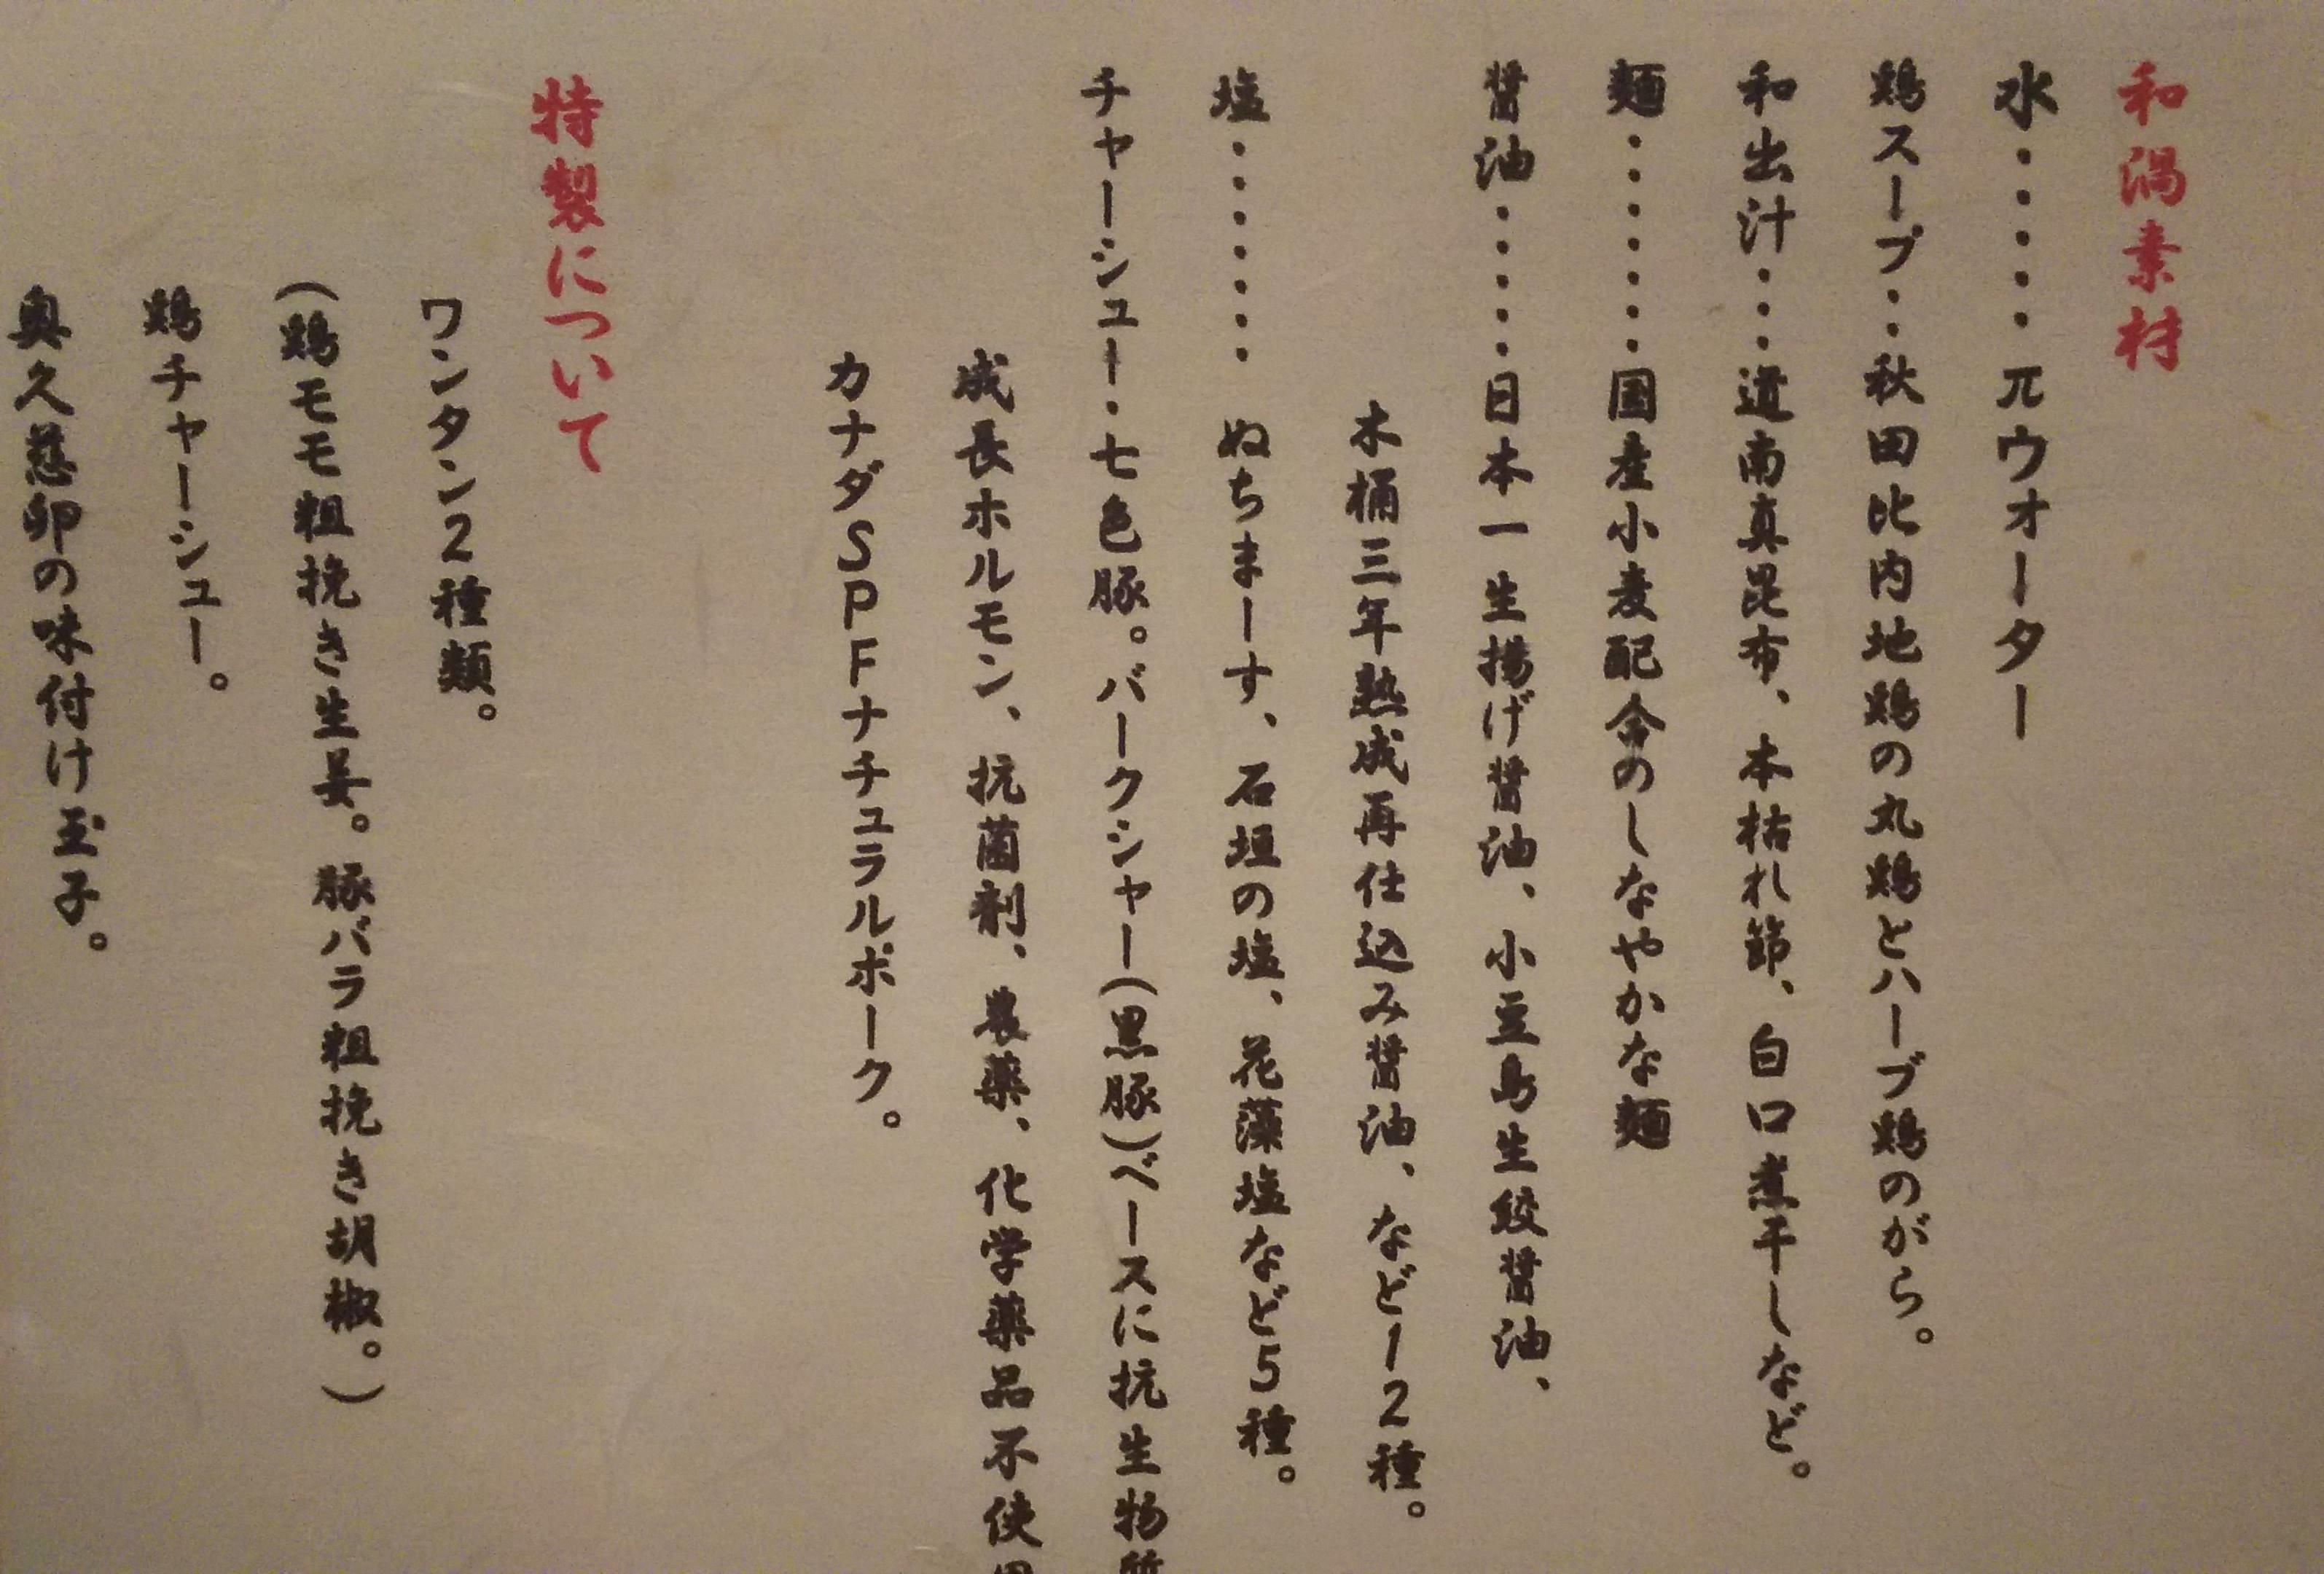 和渦素材
水・・・・・π ウオーター
鶏スープ・・秋田比内地鶏の丸鶏とハーブ鶏のがら。
和出汁・・・道南真昆布、本枯れ節、白口煮干しなど。
麺・・・・・・・国産小麦配合のしなやかな麺
醤油・・・・・日本一生揚げ醤油、小豆島生絞醤油、
木桶三年熟成再仕込み醤油、など12種。
塩・・・・・・・ぬちまーす、石垣の塩、花藻塩など5種。
チャーシュー・七色豚。バークシャー(黒豚)ベースに抗生物質
成長ホルモン、抗菌剤、農薬、化学薬品不使用
カナダSPFナチュラルポーク。
特製について
ワンタン2種類。
(鶏モモ粗挽き生姜。豚バラ粗挽き胡椒。)
鶏チャーシュー。
奥久慈卵の味付け玉子。